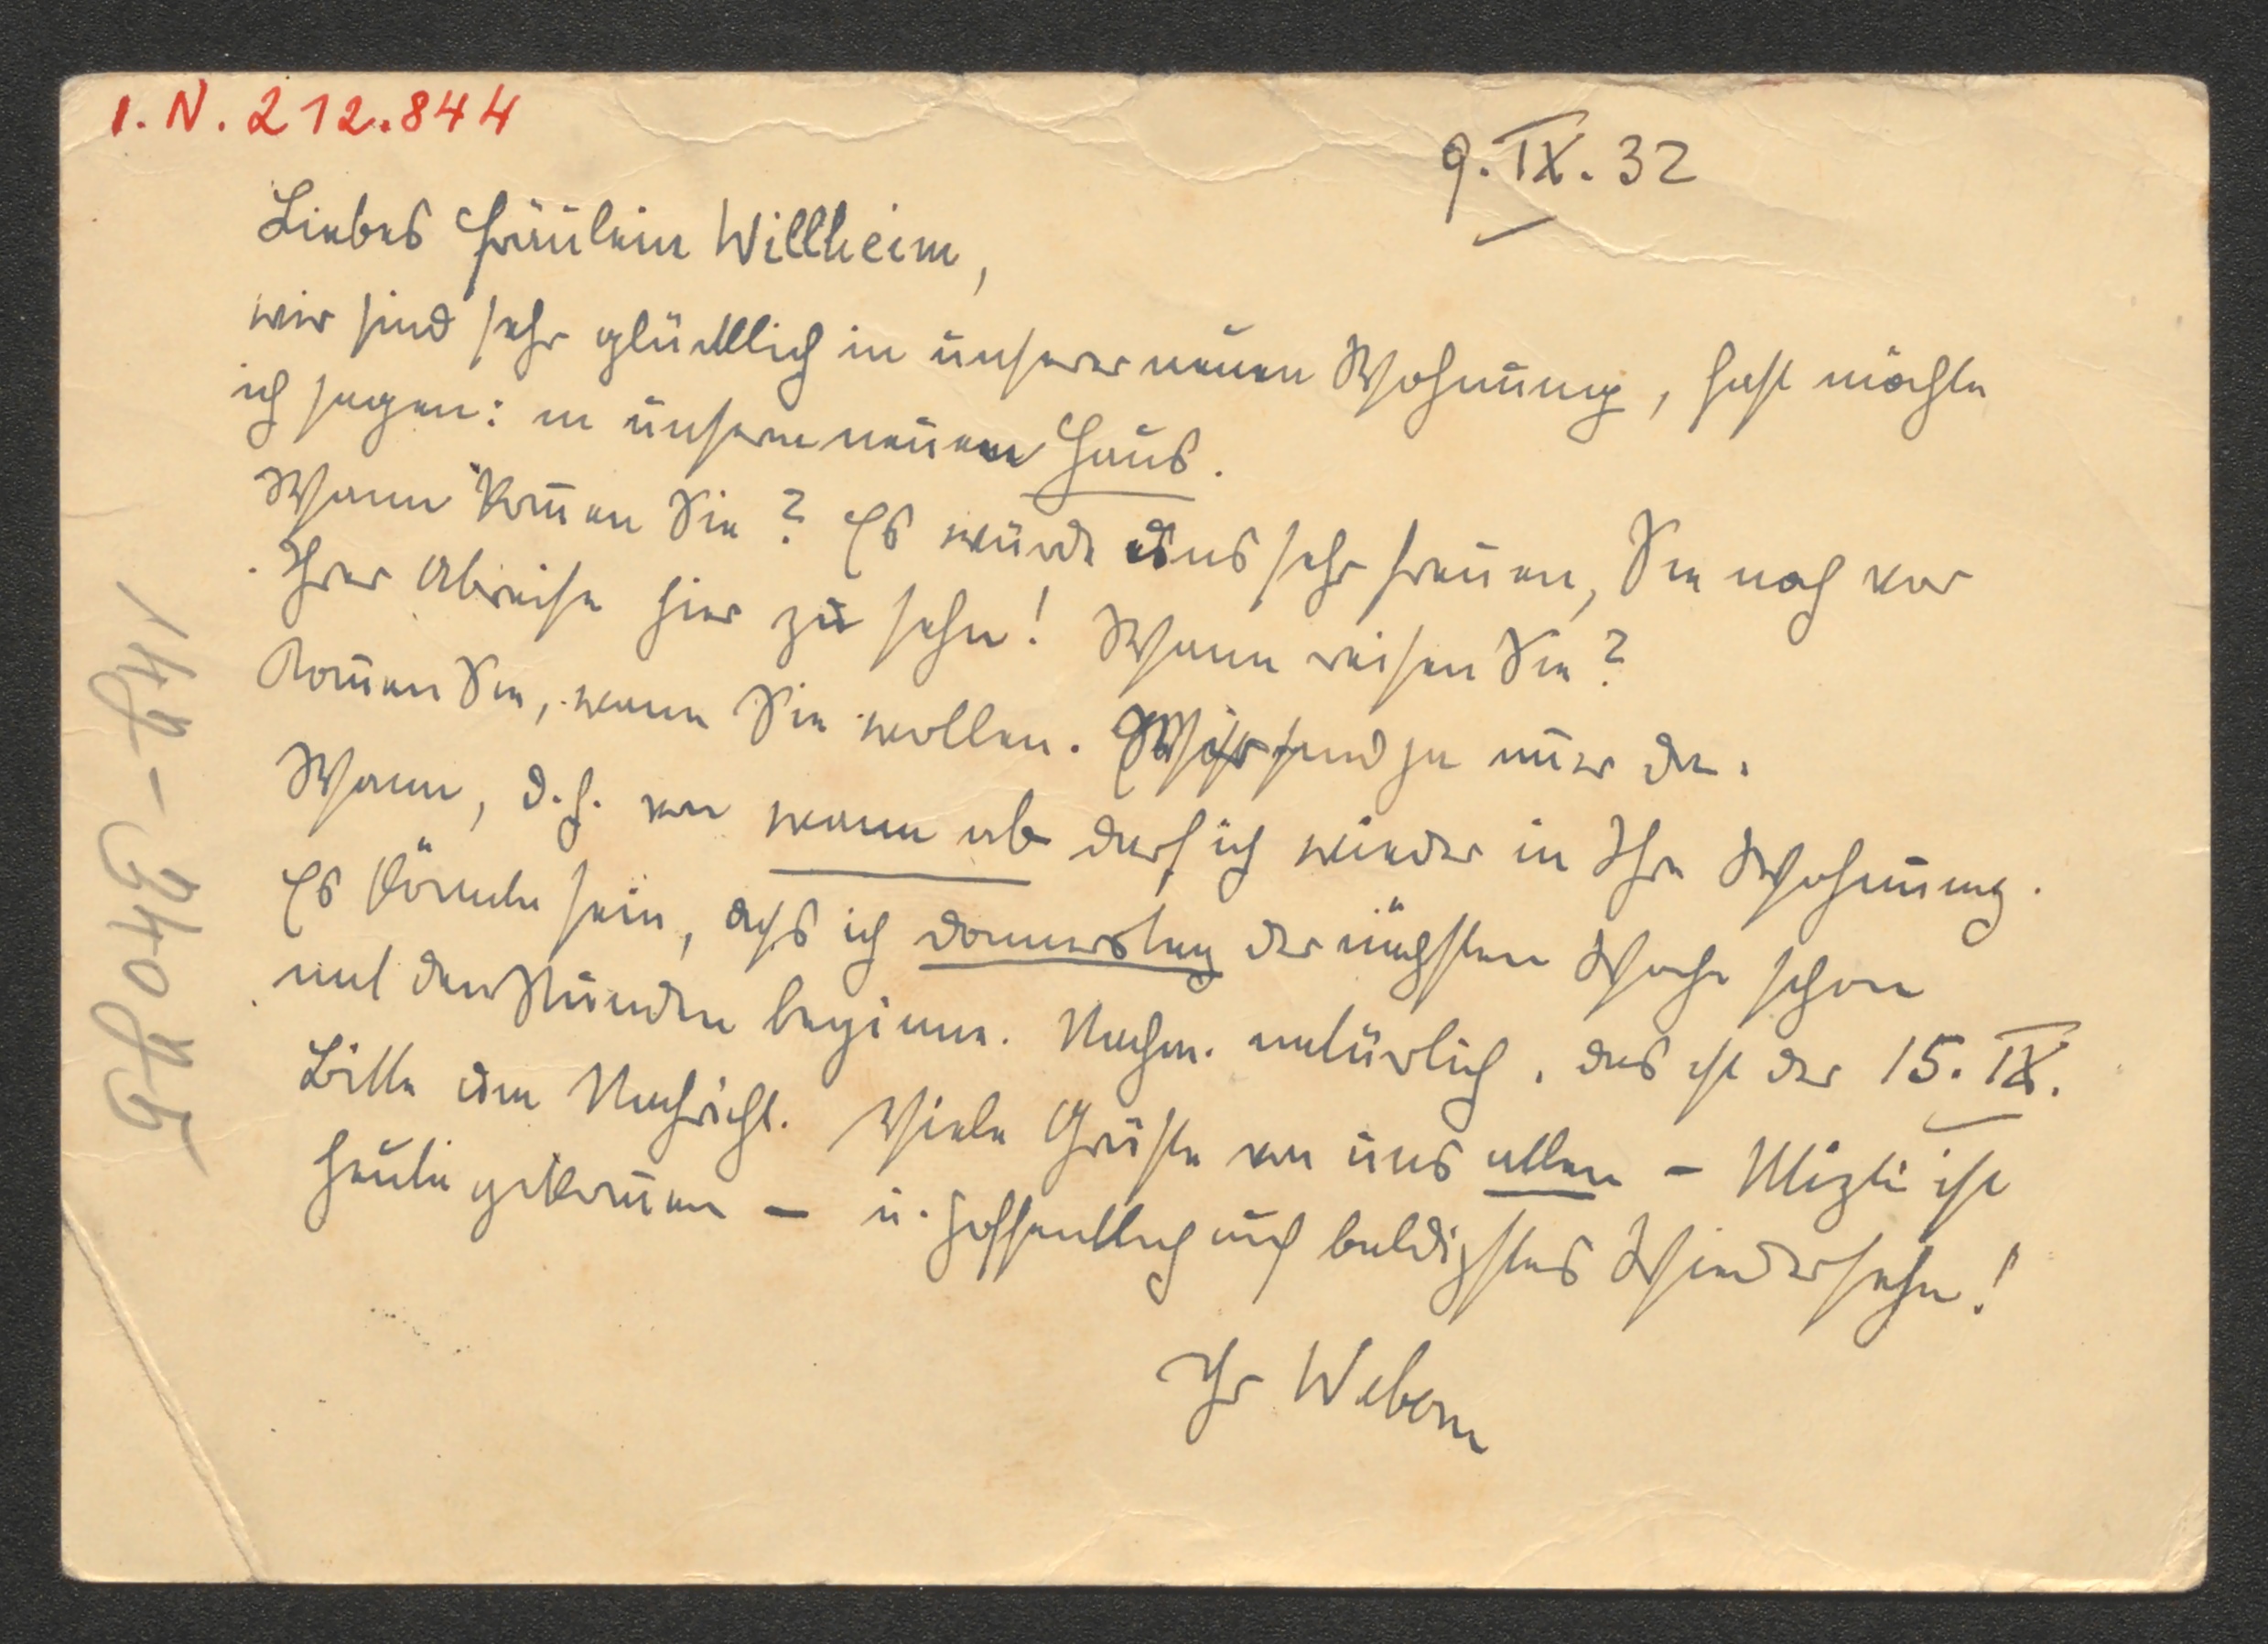 I.N. 212.844
9. IX. 32
Liebes Fräulein Willheim,
wir sind sehr glücklich in unserer neuen Wohnung, fast möchte
ich sagen: in unserem neuen Haus.
Wann kom̄en Sie? Es würde uns sehr freuen, Sie noch vor
Ihrer Abreise hier zu sehn! Wann reisen Sie?
Kom̄en Sie, wann Sie wollen. Wir sind ja im̄er da.
Wann, d. h. von wann ab darf ich wieder in Ihre Wohnung.
Es könnte sein, dass ich donnerstag der nächsten Woche schon
mit den Stunden beginne. Nachm. natürlich, das ist der 15. IX.
Bitte um Nachricht. Viele Grüße von uns allen – Mizzi ist
heute gekom̄en – u. hoffentlich auf baldigstes Wiedersehn!
Ihr Webern